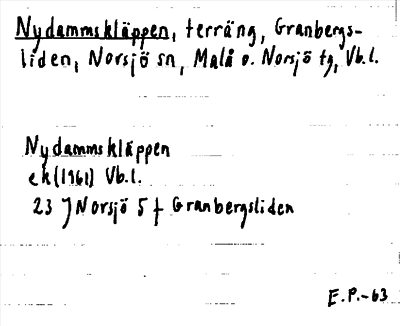 Nydammskläppen, terräng, Granbergs-
liden, Norsjö sn, Malå o. Norsjö tg, Vb.l.
Nydammskläppen
ek (1961) Vb.l.
23 J Norsjö 5 f Granbergsliden
E.P.-63